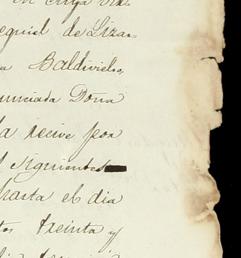 en cuya vir
equiel de Lizar
a Baldivieso
unciada Doña
la recive por
siguientes
hasta el dia
tos treinta y